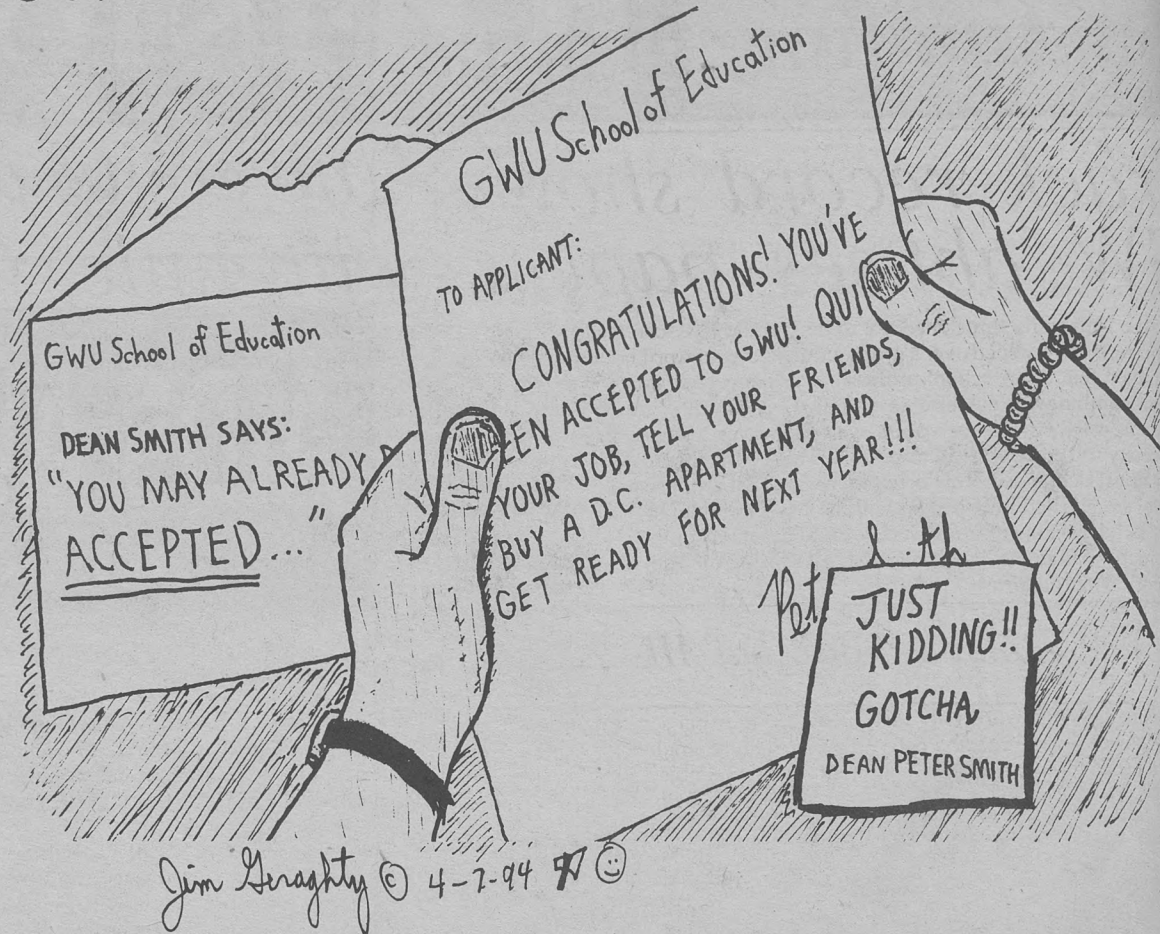 GWU School of Education
DEAN SMITH SAYS:
"YOU MAY ALREADY
ACCEPTED..."
GWU School of Education
TO APPLICANT:
CONGRATULATIONS! YOU'VE
EEN ACCEPTED TO GWU! QUI
YOUR JOB, TELL YOUR FRIENDS,
BUY A D.C. APARTMENT, AND
GET READY FOR NEXT YEAR!!!
Pet
JUST
KIDDING!!
GOTCHA,
DEAN PETER SMITH
Jim Geraghty © 4-7-94